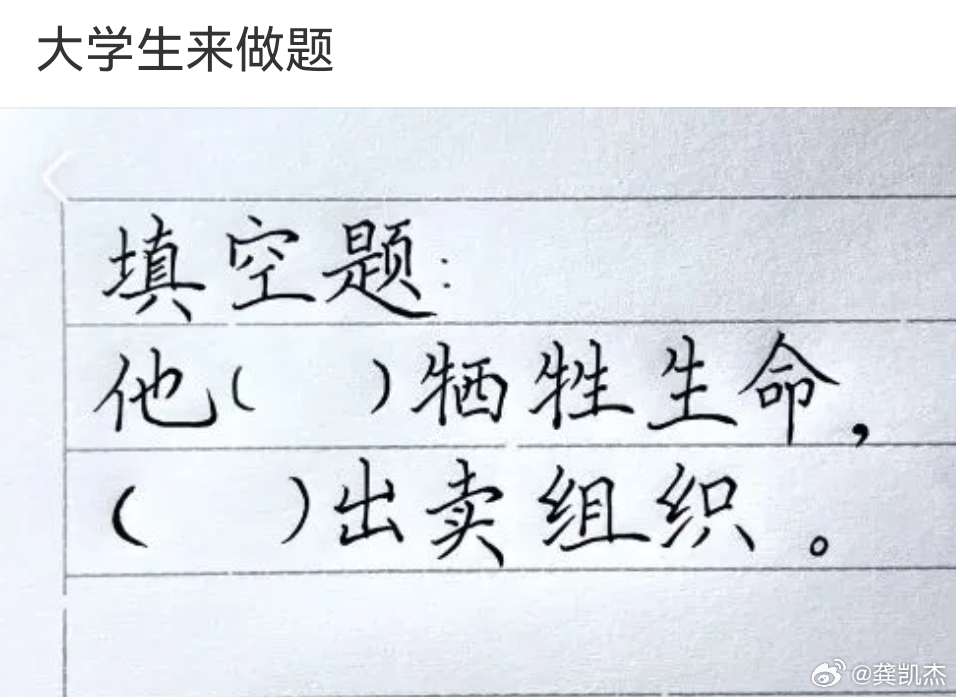 大学生来做题
填空题:
他( )牺牲生命,
( )出卖组织。
@龚凯杰